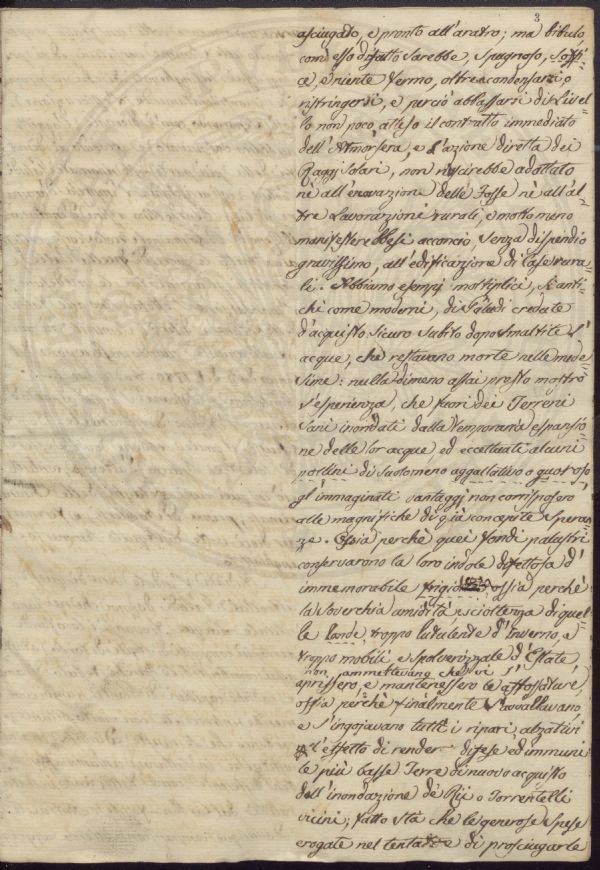 3
asciugato, e pronto all'aratro; ma bibulo
com'esso difatto sarebbe, spugnoso, soffi=
ce, e niente fermo, oltre a condensarsi, o
ristringersi, e perciò abbassarsi di Livel=
lo non poco atteso il contratto immediato
dell'Atmosfera, e l'azione diretta dei
Raggi solari, non riuscirebbe adattato
nè all'escavazione delle fosse nè all'al=
tre Lavorazioni rurali, e molto meno
manifesterebbesi acconcio, senza dispendio
gravissimo, all'edificazione di Case rura=
li. Abbiamo esempj moltiplici, sì anti=
chi come moderni, di Paludi credute
d'acquisto sicuro subito dopo smaltite l'
acque, che restavano morte nelle mede=
sime: nulladimeno assai presto mostrò
l'esperienza, che fuori dei Terreni
sani inondati dalla temporaria espansio=
ne delle lor acque, ed eccettuati alcuni
pollini di suolo meno aggallativo o quotroso,
gl'immaginati vantaggi non corrisposero
alle magnifiche di già concepite speran=
ze. Ossia perchè quei fondi palustri
conservarono la loro indole difettosa d'
immemorabile frigidità ossia perchè
la soverchia amidità, e scioltezza di quel=
le lande, troppo lutulente d'Inverno, e
troppo mobili, e spolverizzate d'Estate
non ammettevano che vi s'
aprissero, e mantenessero le affossature,
ossia perchè finalmente s'avvallavano
e s'ingojavano tutti i ripari, alzativi
all'effetto di render difese ed immuni
le più basse Terre di nuovo acquisto
dall'inondazione de' Rii o Torrentelli
vicini; fatto sta che le generose spese
erogate nel tentare di prosciugarle